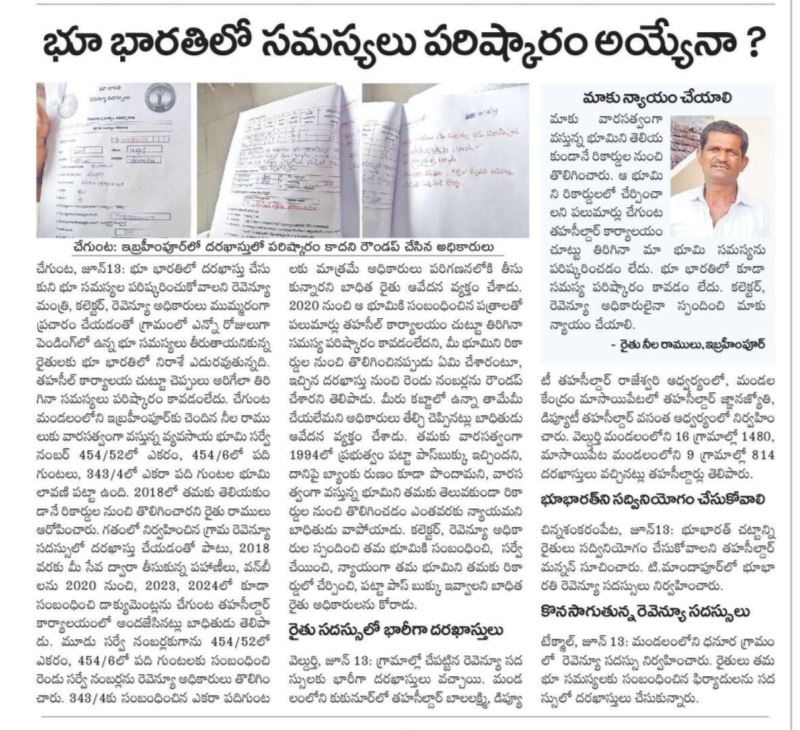 భూ భారతిలో సమస్యలు పరిష్కారం అయ్యేనా ?
చేగుంట: ఇబ్రహీంపూర్‌లో దరఖాస్తులో పరిష్కారం కాదని రౌండప్ చేసిన అధికారులు
చేగుంట, జూన్13: భూ భారతిలో దరఖాస్తు చేసు
కుని భూ సమస్యల పరిష్కరించుకోవాలని రెవెన్యూ
మంత్రి, కలెక్టర్, రెవెన్యూ అధికారులు ముమ్మరంగా
ప్రచారం చేయడంతో గ్రామంలో ఎన్నో రోజులుగా
పెండింగ్‌లో ఉన్న భూ సమస్యలు తీరుతాయనికున్న
రైతులకు భూ భారతిలో నిరాశే ఎదురవుతున్నది.
తహసీల్ కార్యాలయ చుట్టూ చెప్పులు అరిగేలా తిరి
గినా సమస్యలు పరిష్కారం కావడంలేదు. చేగుంట
మండలంలోని ఇబ్రహీంపూర్‌కు చెందిన నీల రాము
లుకు వారసత్వంగా వస్తున్న వ్యవసాయ భూమి సర్వే
నంబర్ 454/52లో ఎకరం, 454/6లో పది
గుంటలు, 343/4లో ఎకరా పది గుంటల భూమి
లావణి పట్టా ఉంది. 2018లో తమకు తెలియకుం
డానే రికార్డుల నుంచి తొలిగించారని రైతు రాములు
ఆరోపించారు. గతంలో నిర్వహించిన గ్రామ రెవెన్యూ
సదస్సులో దరఖాస్తు చేయడంతో పాటు, 2018
వరకు మీ సేవ ద్వారా తీసుకున్న పహాణీలు, వన్‌బీ
లను 2020 నుంచి, 2023, 2024లో కూడా
సంబంధించి డాక్యుమెంట్లను చేగుంట తహసీల్దార్
కార్యాలయంలో అందజేసినట్లు బాధితుడు తెలిపా
డు. మూడు సర్వే నంబర్లకుగాను 454/52లో
ఎకరం, 454/6లో పది గుంటలకు సంబంధించి
రెండు సర్వే నంబర్లను రెవెన్యూ అధికారులు తొలిగిం
చారు. 343/4కు సంబంధించిన ఎకరా పదిగుంట
లకు మాత్రమే అధికారులు పరిగణనలోకి తీసు
కున్నారని బాధిత రైతు ఆవేదన వ్యక్తం చేశాడు.
2020 నుంచి ఆ భూమికి సంబంధించిన పత్రాలతో
పలుమార్లు తహసీల్ కార్యాలయం చుట్టూ తిరిగినా
సమస్య పరిష్కారం కావడంలేదని, మీ భూమిని రికా
ర్డుల నుంచి తొలిగించినప్పుడు ఏమి చేశారంటూ,
ఇచ్చిన దరఖాస్తు నుంచి రెండు నంబర్లను రౌండప్
చేశారని తెలిపాడు. మీరు కబ్జాలో ఉన్నా తామేమీ
చేయలేమని అధికారులు తేల్చి చెప్పినట్లు బాధితుడు
ఆవేదన వ్యక్తం చేశాడు. తమకు వారసత్వంగా
1994లో ప్రభుత్వం పట్టా పాస్‌బుక్కు ఇచ్చిందని,
దానిపై బ్యాంకు రుణం కూడా పొందామని, వారస
త్వంగా వస్తున్న భూమిని తమకు తెలువకుండా రికా
ర్డుల నుంచి తొలిగించడం ఎంతవరకు న్యాయమని
బాధితుడు వాపోయాడు. కలెక్టర్, రెవెన్యూ అధికా
రులు స్పందించి తమ భూమికి సంబంధించి, సర్వే
చేయించి, న్యాయంగా తమ భూమిని తమకు రికా
ర్డులో చేర్పించి, పట్టా పాస్ బుక్కు ఇవ్వాలని బాధిత
రైతు అధికారులను కోరాడు.
రైతు సదస్సులో భారీగా దరఖాస్తులు
వెల్దుర్తి, జూన్ 13: గ్రామాల్లో చేపట్టిన రెవెన్యూ సద
స్సులకు భారీగా దరఖాస్తులు వచ్చాయి. మండ
లంలోని కుకునూర్‌లో తహసీల్దార్ బాలలక్ష్మి, డిప్యూ
మాకు న్యాయం చేయాలి
మాకు వారసత్వంగా
వస్తున్న భూమిని తెలియ
కుండానే రికార్డుల నుంచి
తొలిగించారు. ఆ భూమి
ని రికార్డులలో చేర్పించా
లని పలుమార్లు చేగుంట
తహసీల్దార్ కార్యాలయం
చుట్టూ తిరిగినా మా భూమి సమస్యను
పరిష్కరించడం లేదు. భూ భారతిలో కూడా
సమస్య పరిష్కారం కావడం లేదు. కలెక్టర్,
రెవెన్యూ అధికారులైనా స్పందించి మాకు
న్యాయం చేయాలి.
- రైతు నీల రాములు, ఇబ్రహీంపూర్
టీ తహసీల్దార్ రాజేశ్వరి ఆధ్వర్యంలో, మండల
కేంద్రం మాసాయిపేటలో తహసీల్దార్ జ్ఞానజ్యోతి,
డిప్యూటీ తహసీల్దార్ వసంత ఆధ్వర్యంలో నిర్వహిం
చారు. వెల్దుర్తి మండలంలోని 16 గ్రామాల్లో 1480,
మాసాయిపేట మండలంలోని 9 గ్రామాల్లో 814
దరఖాస్తులు వచ్చినట్లు తహసీల్దార్లు తెలిపారు.
భూభారత్‌ని సద్వినియోగం చేసుకోవాలి
చిన్నశంకరంపేట, జూన్13: భూభారత్ చట్టాన్ని
రైతులు సద్వినియోగం చేసుకోవాలని తహసీల్దార్
మన్నన్ సూచించారు. టి.మాందాపూర్‌లో భూభా
రతి రెవెన్యూ సదస్సులు నిర్వహించారు.
కొనసాగుతున్న రెవెన్యూ సదస్సులు
టేక్మాల్, జూన్ 13: మండలంలోని ధనూర గ్రామం
లో రెవెన్యూ సదస్సు నిర్వహించారు. రైతులు తమ
భూ సమస్యలకు సంబంధించిన ఫిర్యాదులను సద
స్సులో దరఖాస్తులు చేసుకున్నారు.